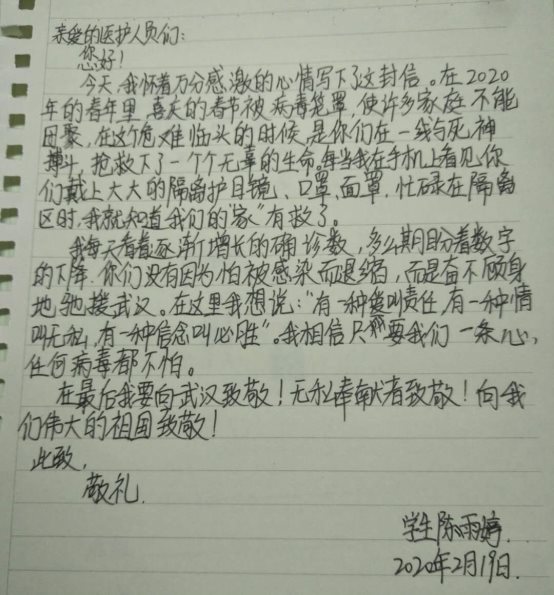 亲爱的医护人员们:
您好!
今天,我怀着万分感激的心情写下了这封信。在2020
年的春年里,喜庆的春节被病毒笼罩,使许多家庭不能
团聚,在这个危难临头的时候,是你们在一线与死神
搏斗,抢救下了一个个无辜的生命。每当我在手机上看见你
们戴上大大的隔离护目镜、口罩、面罩,忙碌在隔离
区时,我就知道我们的“家”有救了。
我每天看着逐渐增长的确诊数,多么期盼着数字
的下降。你们没有因为怕被感染而退缩,而是奋不顾身
地驰援武汉。在这里我想说:“有一种爱叫责任,有一种情
叫无私,有一种信念叫必胜”。我相信只要我们一条心,
任何病毒都不怕。
在最后我要向武汉致敬!无私奉献者致敬!向我
们伟大的祖国致敬!
此致,
敬礼.
学生陈雨婷.
2020年2月19日.